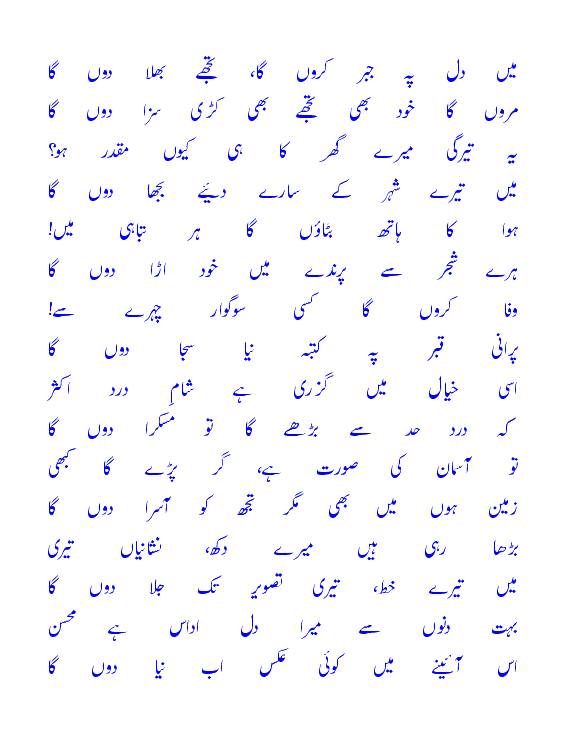 میں دل پہ جبر کروں گا، تجھے بھلا دوں گا
مروں گا خود بھی تجھے بھی کڑی سزا دوں گا
یہ تیرگی میرے گھر کا ہی کیوں مقدر ہو؟
میں تیرے شہر کے سارے دئیے بجھا دوں گا
ہوا کا ہاتھ بٹاؤں گا ہر تباہی میں!
ہرے شجر سے پرندے میں خود اڑا دوں گا
وفا کروں گا کسی سوگوار چہرے سے!
پرانی قبر پہ کتبہ نیا سجا دوں گا
اسی خیال میں گزری ہے شامِ درد اکثر
کہ درد حد سے بڑھے گا تو مسکرا دوں گا
تو آسان کی صورت ہے، گر پڑے گا کبھی
زمین ہوں میں بھی مگر تجھ کو آسرا دوں گا
بڑھا رہی ہیں میرے دکھ، نشانیاں تیری
میں تیرے خط، تیری تصویر تک جلا دوں گا
بہت دنوں سے میرا دل اداس ہے محسن
اس آئینے میں کوئی عکس اب نیا دوں گا